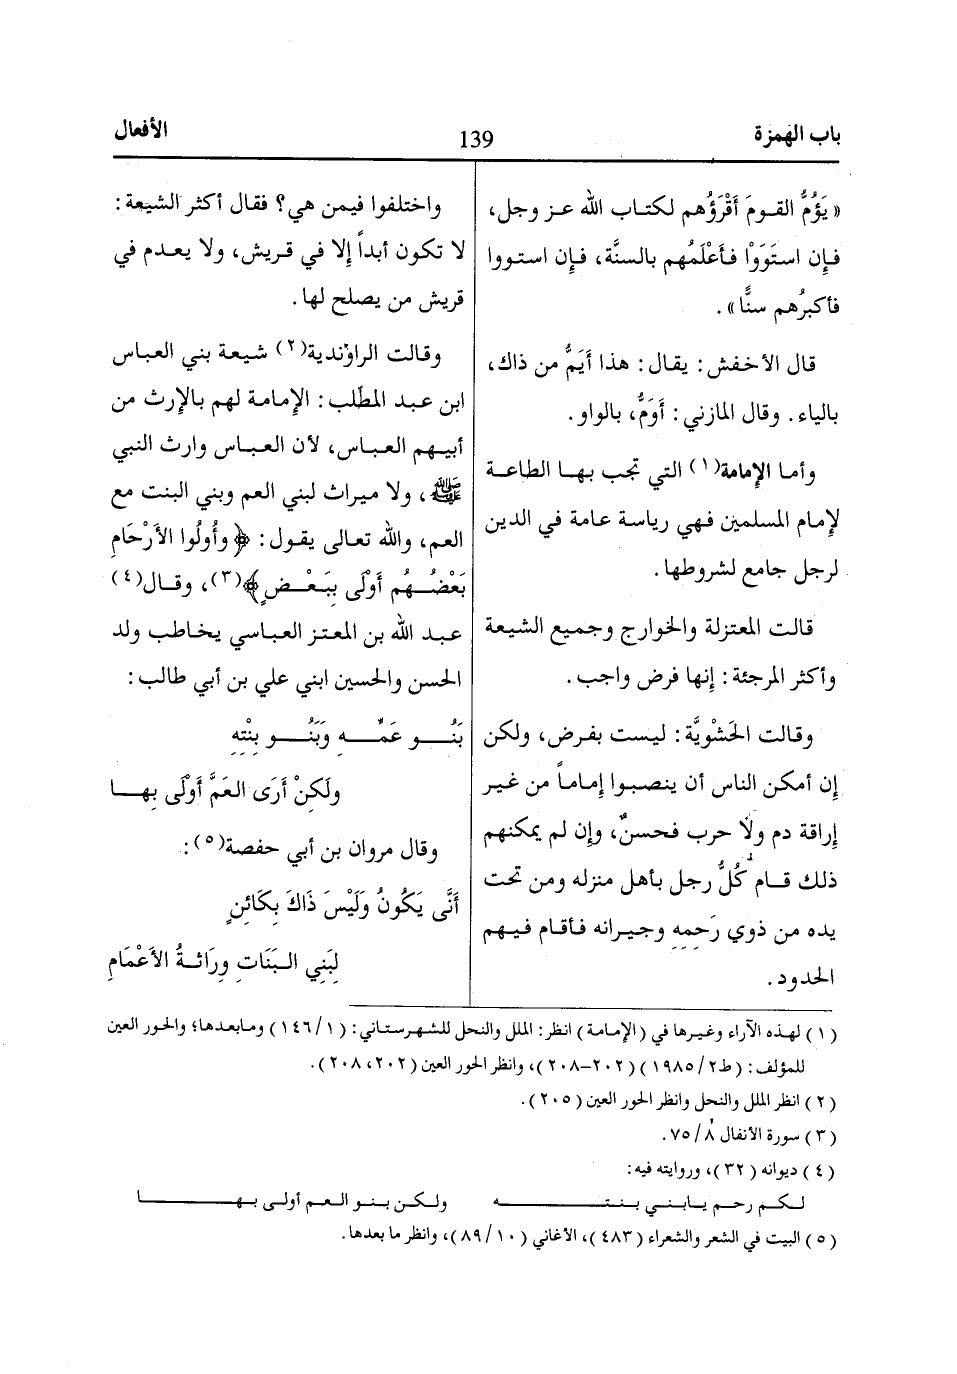 باب الهمزة 139 الأفعال
« يَؤُمُّ القومَ أَقْرَؤُهم لكتاب الله عز وجل،
فإن استَوَوْا فأَعْلَمُهم بالسنَّة، فإن استووا
فأكبرُهم سنًّا».
قال الأخفش: يقال: هذا أَيَمُّ من ذاك،
بالياء. وقال المازني: أَوَمُّ، بالواو.
وأما الإِمامة(١) التي تجب بها الطاعة
لإمام المسلمين فهي رياسة عامة في الدين
لرجل جامع لشروطها.
قالت المعتزلة والخوارج وجميع الشيعة
وأكثر المرجئة: إنها فرض واجب.
وقالت الحَشْويَّة: ليست بفرض، ولكن
إن أمكن الناس أن ينصبوا إماماً من غير
إراقة دم ولا حرب فحسنٌ، وإن لم يمكنهم
ذلك قام كُلُّ رجل بأهل منزله ومن تحت
يده من ذوي رَحِمِهِ وجيرانه فأقام فيهم
الحدود.
واختلفوا فيمن هي؟ فقال أكثر الشيعة:
لا تكون أبداً إلا في قريش، ولا يعدم في
قريش من يصلح لها.
وقالت الراوْندية(٢) شيعة بني العباس
ابن عبد المطّلب: الإمامة لهم بالإرث من
أبيهم العباس، لأن العباس وارث النبي
ﷺ، ولا ميراث لبني العم وبني البنت مع
العم، والله تعالى يقول: ﴿وأُولُوا الأَرْحَامِ
بَعْضُهُم أَوْلَى بِبَعْضٍ﴾(٣)، وقال(٤)
عبد الله بن المعتز العباسي يخاطب ولد
الحسن والحسين ابني علي بن أبي طالب:
بَنُو عَمِّهِ وَبَنُو بِنْتِهِ
ولَكِنْ أَرَى العَمَّ أَوْلَى بِها
وقال مروان بن أبي حفصة(٥):
أَنَّى يَكُونُ وَلَيْسَ ذَاكَ بِكَائِنٍ
لِبَنِي البَنَاتِ وِرَاثَةُ الأَعْمَامِ
(١) لهذه الآراء وغيرها في (الإمامة) انظر: الملل والنحل للشهرستاني: (١/١٤٦) ومابعدها؛ والحور العين
للمؤلف: (ط٢/١٩٨٥) (٢٠٢-٢٠٨)، وانظر الحور العين (٢٠٢، ٢٠٨).
(٢) انظر الملل والنحل وانظر الحور العين (٢٠٥).
(٣) سورة الأنفال ٨/٧٥.
(٤) ديوانه (٣٢)، وروايته فيه:
لكم رحم يابني بنته ولكن بنو العم أولى بها
(٥) البيت في الشعر والشعراء (٤٨٣)، الأغاني (١٠/٨٩)، وانظر ما بعدها.